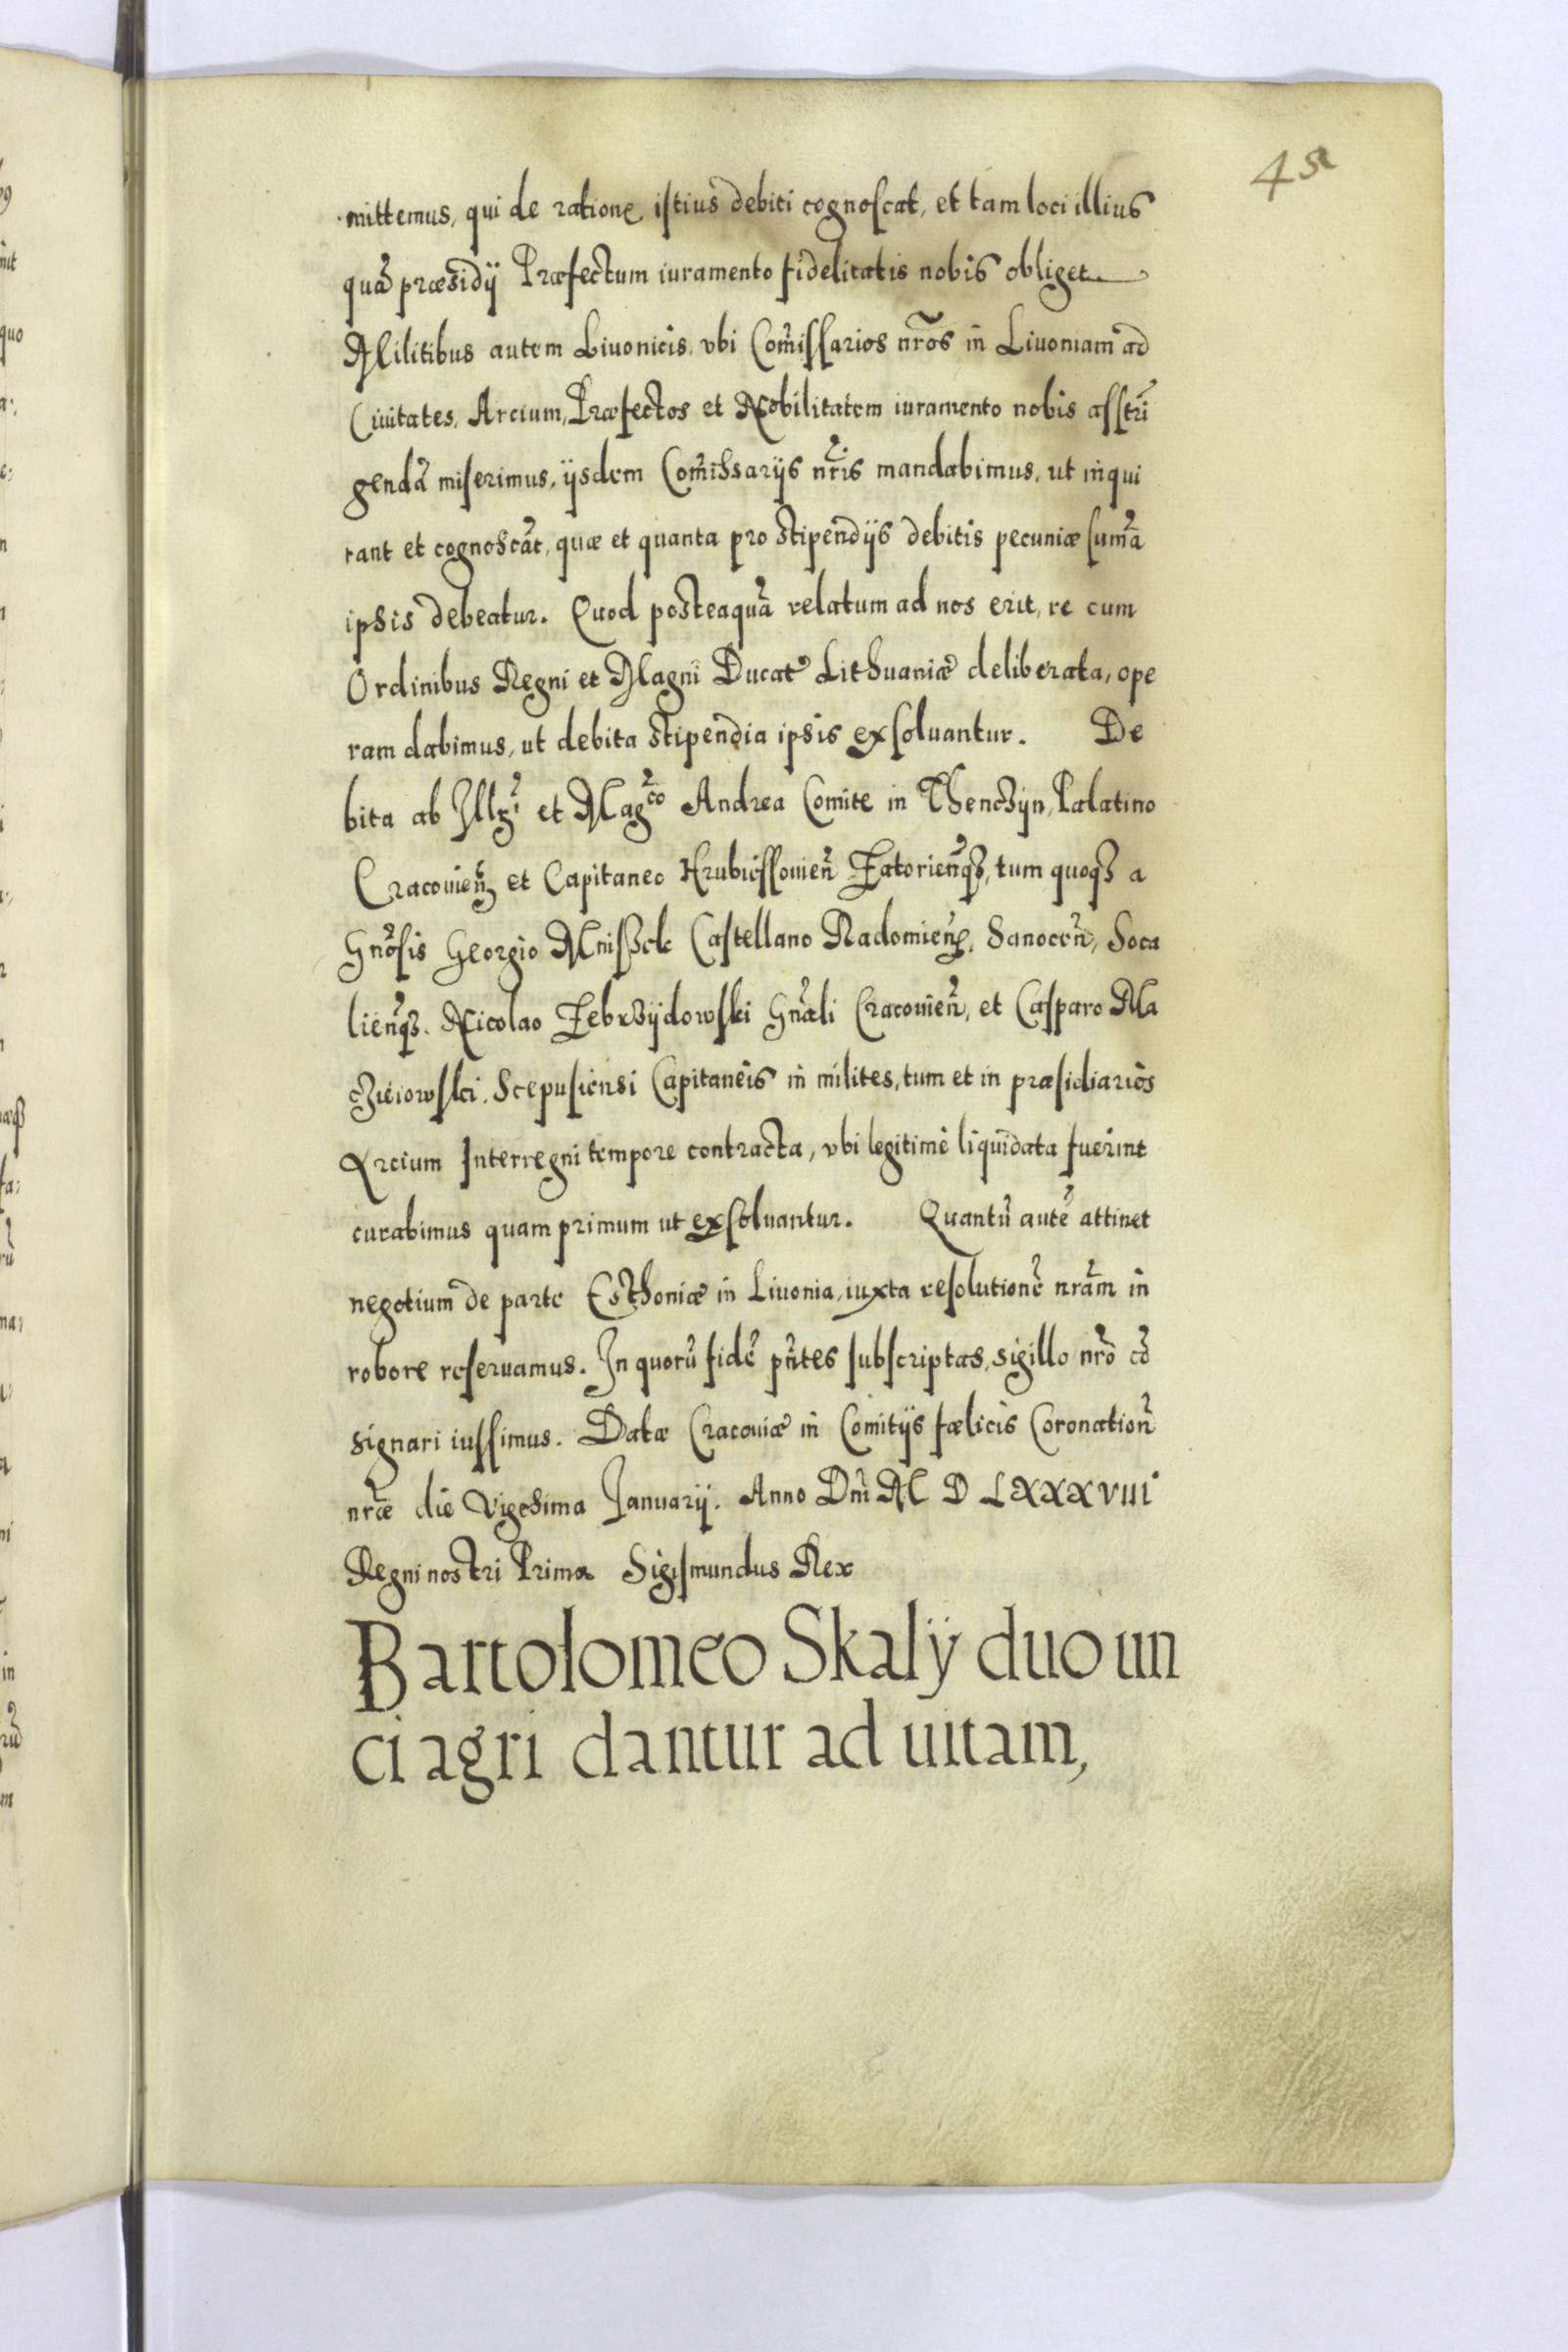 45
mittemus, qui de ratione istius debiti cognoscat, et tam loci illius
quã præsidÿ Præfectum iuramento fidelitatis nobis obliget
Militibus autem Liuonicis, vbi Com̃issarios nr̃os in Liuoniam ad
Ciuitates, Arcium, Præfectos et Nobilitatem iuramento nobis asstri
gendã miserimus, ijsdem Com̃issarijs nr̃is mandabimus, ut inqui
rant et cognoscãt, quæ et quanta pro stipendijs debitis pecuniæ sum̃a
ipsis debeatur. Quod posteaquã relatum ad nos erit, re cum
Ordinibus Regni et Magni Ducat9 Lithuaniæ deliberata, ope
ram dabimus, ut debita stipendia ipsis exsoluantur. De
bita ab Illr̃i et Mag̃co Andrea Comite in Thenczÿn, Palatino
Cracouieñ et Capitaneo Hrubiessouieñ Zatorieñq3, tum quoq3 a
Gñosis Georgio Mnisszek Castellano Radomieñ, Sanoceñ, Soca
lieñq3. Nicolao Zebrzÿdowski Gñali Cracouieñ, et Casparo Ma
czieiowski, Scepusiensi Capitaneis in milites, tum et in præsidiarios
Arcium Interregni tempore contracta, vbi legitime liquidata fuerint
curabimus quam primum ut exsoluantur. Quantũ autẽ attinet
negotium de parte Esthoniæ in Liuonia, iuxta resolutionẽ nr̃am in
robore reseruamus. In quorũ fidẽ pñtes subscriptas, sigillo nr̃o cõ
signari iussimus. Datæ Cracouiæ in Comitijs fœlicis Coronationĩ
nr̃æ die Vigesima Januarij. Anno Dnĩ M D LXXXVIII
Regni nostri Primo Sigismundus Rex
Bartolomeo Skalÿ duo un
ci agri dantur ad uitam,